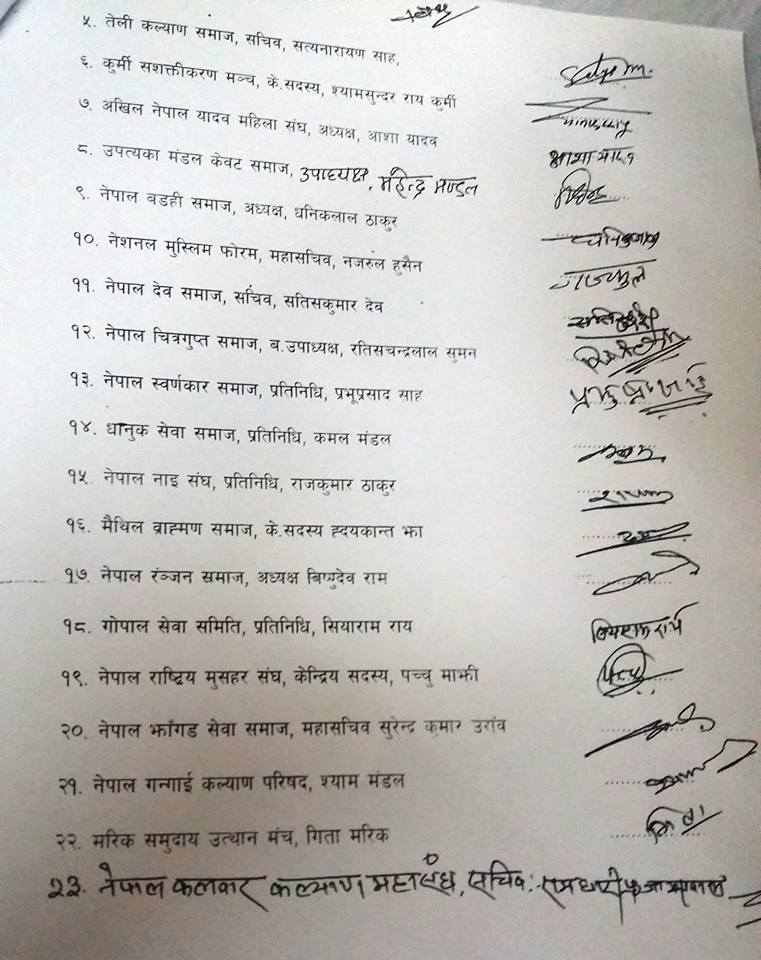 ५. तेली कल्याण समाज, सचिव, सत्यनारायण साह,
६. कुर्मी सशक्तीकरण मञ्च, के.सदस्य, श्यामसुन्दर राय कुर्मी
७. अखिल नेपाल यादव महिला संघ, अध्यक्ष, आशा यादव
८. उपत्यका मंडल केवट समाज, उपाध्यक्ष, महिन्द्र मण्डल
९. नेपाल बडही समाज, अध्यक्ष, धनिकलाल ठाकुर
१०. नेशनल मुस्लिम फोरम, महासचिव, नजरुल हुसैन
११. नेपाल देव समाज, सचिव, सतिसकुमार देव
१२. नेपाल चित्रगुप्त समाज, ब.उपाध्यक्ष, रतिसचन्द्रलाल सुमन
१३. नेपाल स्वर्णकार समाज, प्रतिनिधि, प्रभूप्रसाद साह
१४. धानुक सेवा समाज, प्रतिनिधि, कमल मंडल
१५. नेपाल नाइ संघ, प्रतिनिधि, राजकुमार ठाकुर
१६. मैथिल ब्राह्मण समाज, के.सदस्य ह्दयकान्त झा
१७. नेपाल रंञ्जन समाज, अध्यक्ष बिष्णुदेव राम
१८. गोपाल सेवा समिति, प्रतिनिधि, सियाराम राय
१९. नेपाल राष्ट्रिय मुसहर संघ, केन्द्रिय सदस्य, पच्चु माझी
२०. नेपाल झाँगड सेवा समाज, महासचिव सुरेन्द्र कुमार उरांव
२१. नेपाल गनगाई कल्याण परिषद, श्याम मंडल
२२. मरिक समुदाय उत्थान मंच, गिता मरिक
२३. नेपाल कलवार कल्याण महासंघ, सचिव: